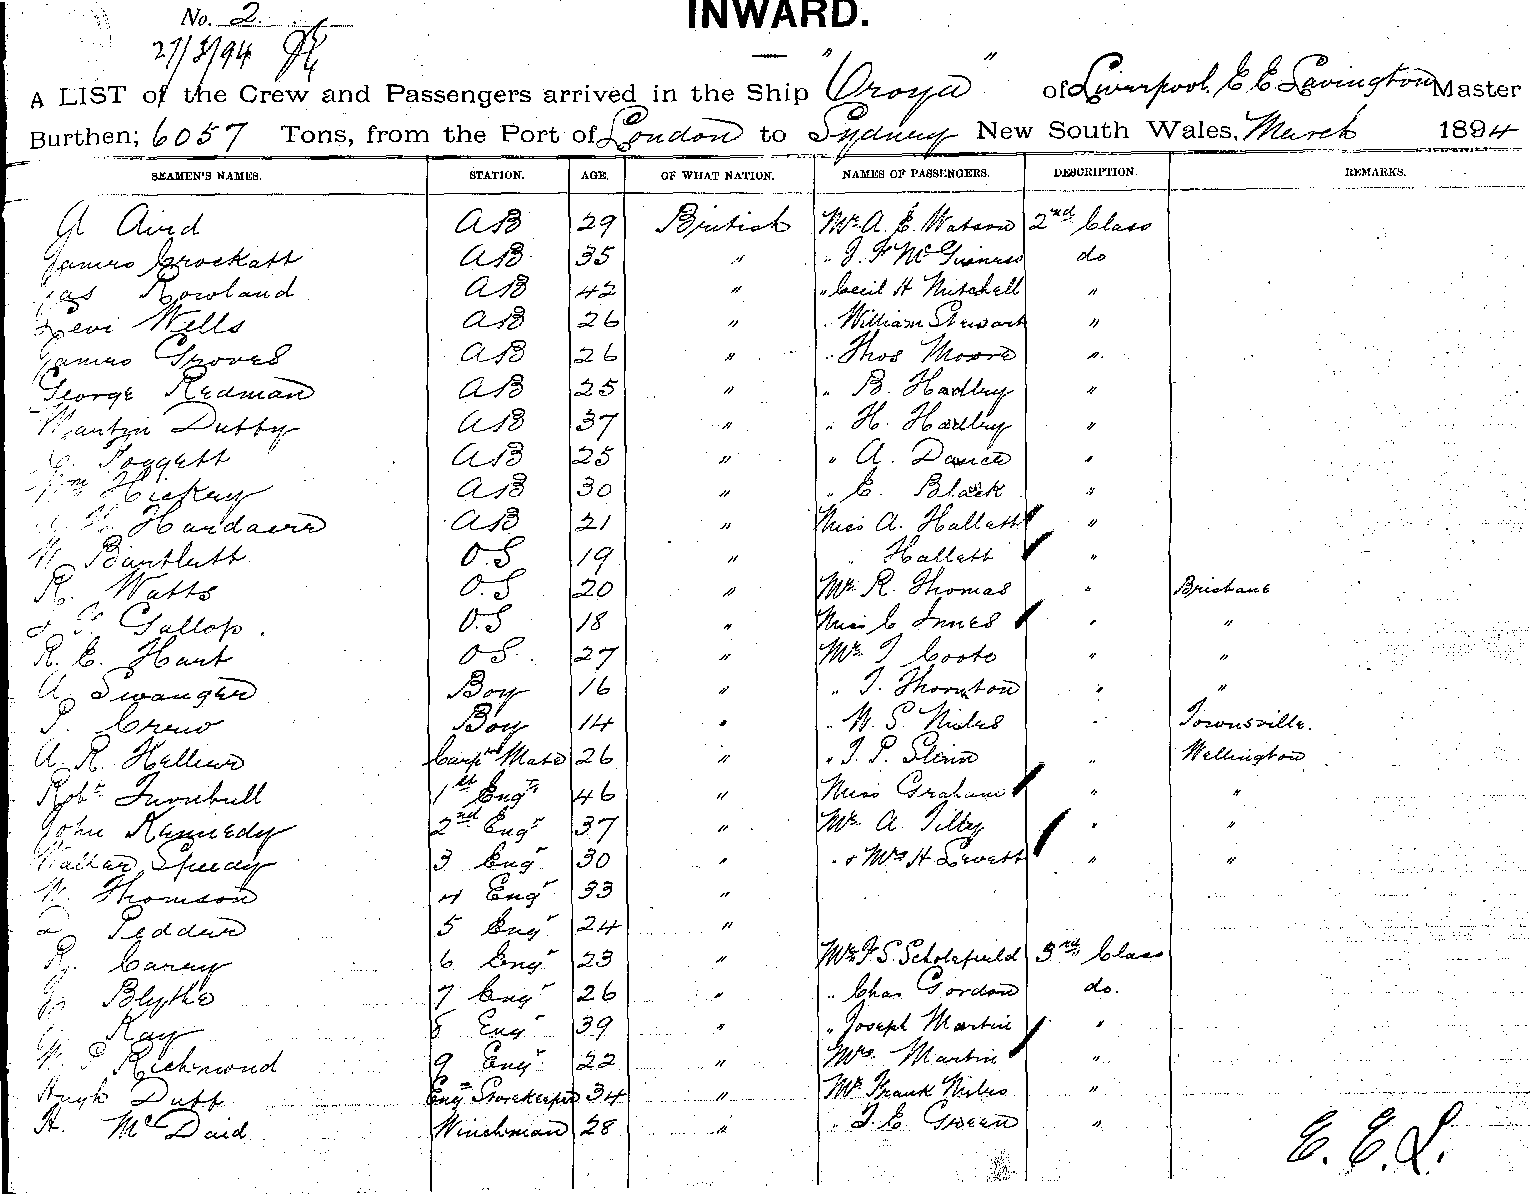 No. 2.
INWARD.
27/3/94
A LIST of the Crew and Passengers arrived in the Ship "Oroya" of Liverpool, E E Lavington Master
Burthen; 6057 Tons, from the Port of London to Sydney New South Wales, March 1894
SEAMEN'S NAMES. STATION. AGE. OF WHAT NATION. NAMES OF PASSENGERS. DESCRIPTION. REMARKS.
A Aird AB 29 British Mr A. E. Watson 2nd Class
James Crockatt AB 35 " " J. F. McGuiness do
Jas Rowland AB 42 " " Cecil H Mitchell "
Levi Wells AB 26 " " William Stewart "
James Groves AB 26 " " Thos Moore "
George Redman AB 25 " " B. Hadley "
Martin Duffy AB 37 " " H. Hadley "
Foggett AB 25 " " A. Dance "
Wm Hickey AB 30 " " E. Black "
Hardacre AB 21 " Miss A. Hallett "
W Bartlett O.S 19 " " Hallett "
R. Watts O.S 20 " Mr R. Thomas " Brisbane
Gallop. O.S 18 " Miss C Innes " "
R. E. Hart OS. 27 " Mr J Coote " "
A Swanger Boy 16 " " J. Thornton " "
P. Crew Boy 14 " " W. S. Niles " Townsville.
A. R. Hellier Carp'rs Mate 26 " " J. P. Glenn " Wellington
Robt Turnbull 1st Engr 46 " Miss Graham " "
John Kennedy 2nd Engr 37 " Mr A Tilby " "
Walter Speedy 3 Engr 30 " " & Mrs H Levett " "
W. Thomson 4 Engr 33 "
Pedder 5 Engr 24 "
R. Carey 6 Engr 23 " Mr F. S. Scholefield 3rd Class
Blythe 7 Engr 26 " " Chas Gordon do.
Kay 8 Engr 39 " " Joseph Martin "
W. P Richmond 9 Engr 22 " Mrs. Martin "
Hugh Duff Engrs Storekeeper 34 " Mr Frank Niles "
H. McDaid Winchman 28 " " J. E Green "
E. E. L.